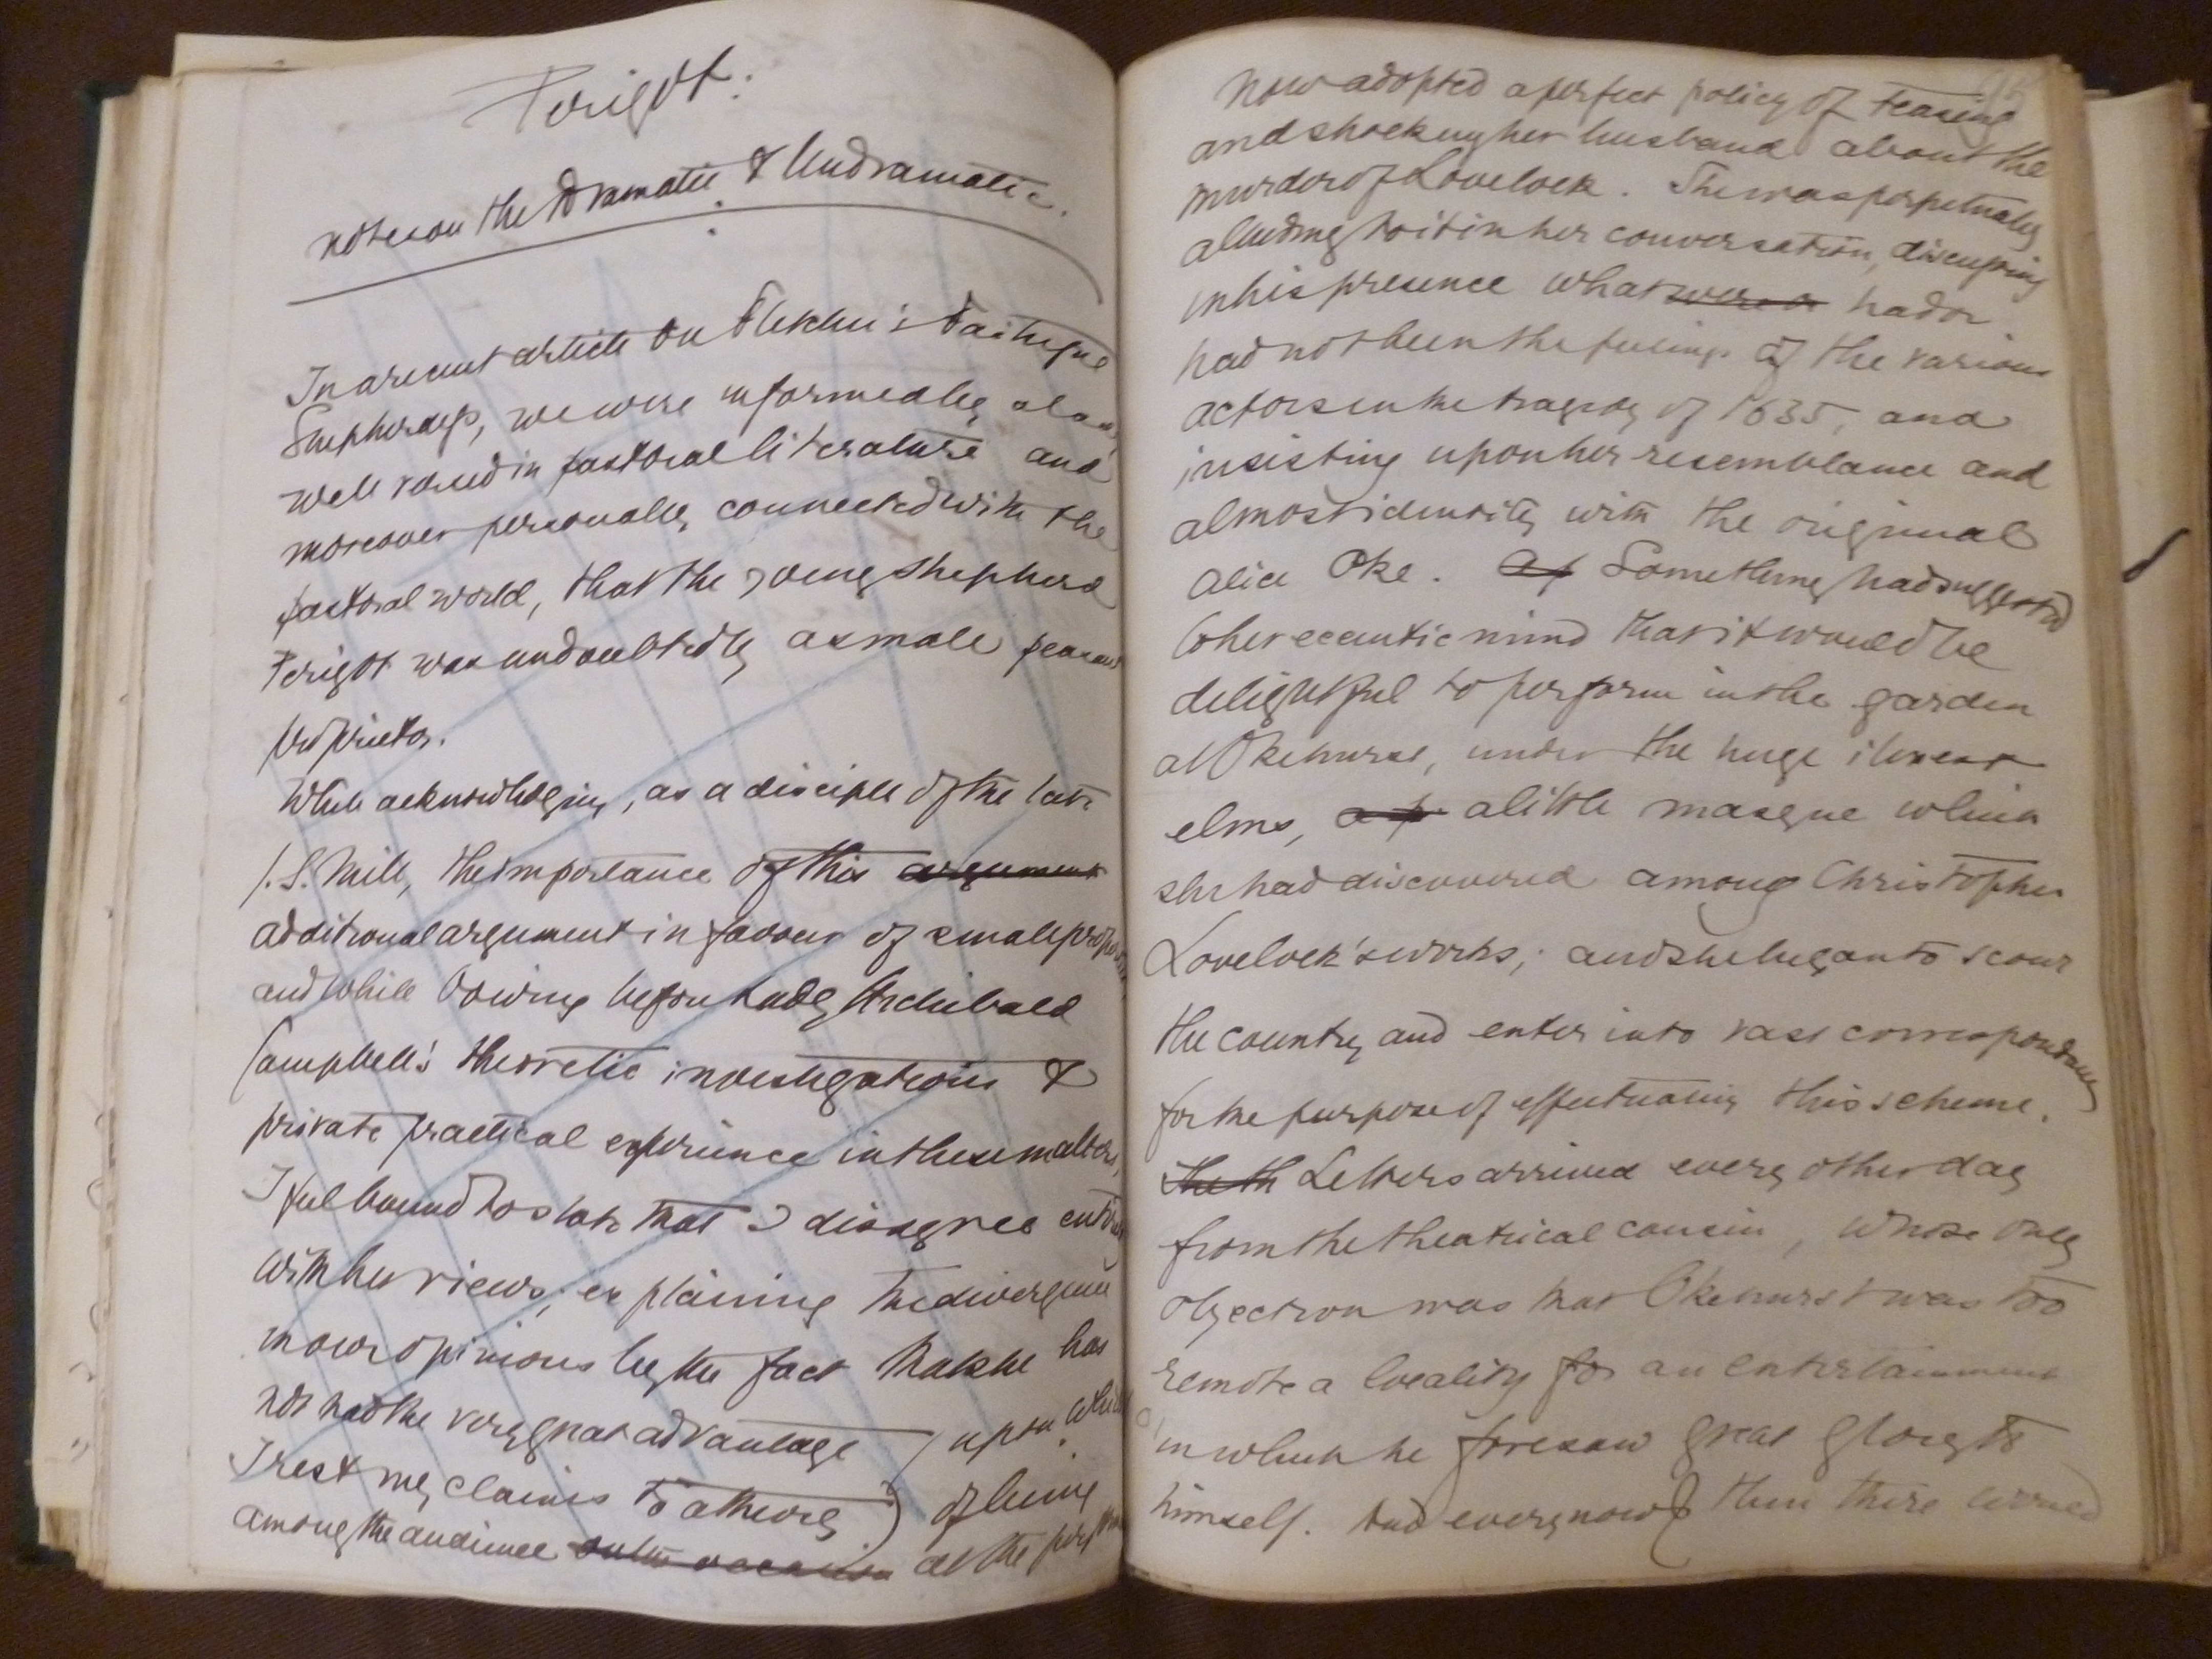 Perigot.
notes on the Dramatic & Undramatic.
In a recent article on Fletcher's Faithful
Shepherdess, we were informed by a lady
well versed in pastoral literature and
moreover personally connected with the
pastoral world, that the young shepherd
Perigot was undoubtedly a small peasant
proprietor.
While acknowledging, as a disciple of the late
J.S. Mill, the importance of this argument
additional argument in favour of small
and while bowing before Lady Archibald
Campbell's theoretic investigations &
private practical experience in these matters,
I feel bound to state that I disagree entirely
with her views, explaining the divergence
in our opinions by the fact that she has
not had the very great advantage upon which
I rest my claims to a theory of being
among the audience on the occasion at the
95
now adopted a perfect policy of teasing
and shocking her husband about the
murder of Lovelock. She was perpetually
alluding to it in her conversation, discussing
in his presence what were a had or
had not been the feelings of the various
actors in the tragedy of 1635, and
insisting upon her resemblance and
almost identity with the original
Alice Oke. Something had suggested
to her eccentric mind that it would be
delightful to perform in the garden
at Okehurst, under the huge ilexes &
elms, a little masque which
she had discovered among Christopher
Lovelock's works; and she began to scour
the country and enter into vast correspondence
for the purpose of effectuating this scheme.
the th Letters arrived every other day
from the theatrical cousin, whose only
objection was that Okehurst was too
remote a locality for an entertainment
in which he foresaw great glory to
himself. And every now & then there arrived